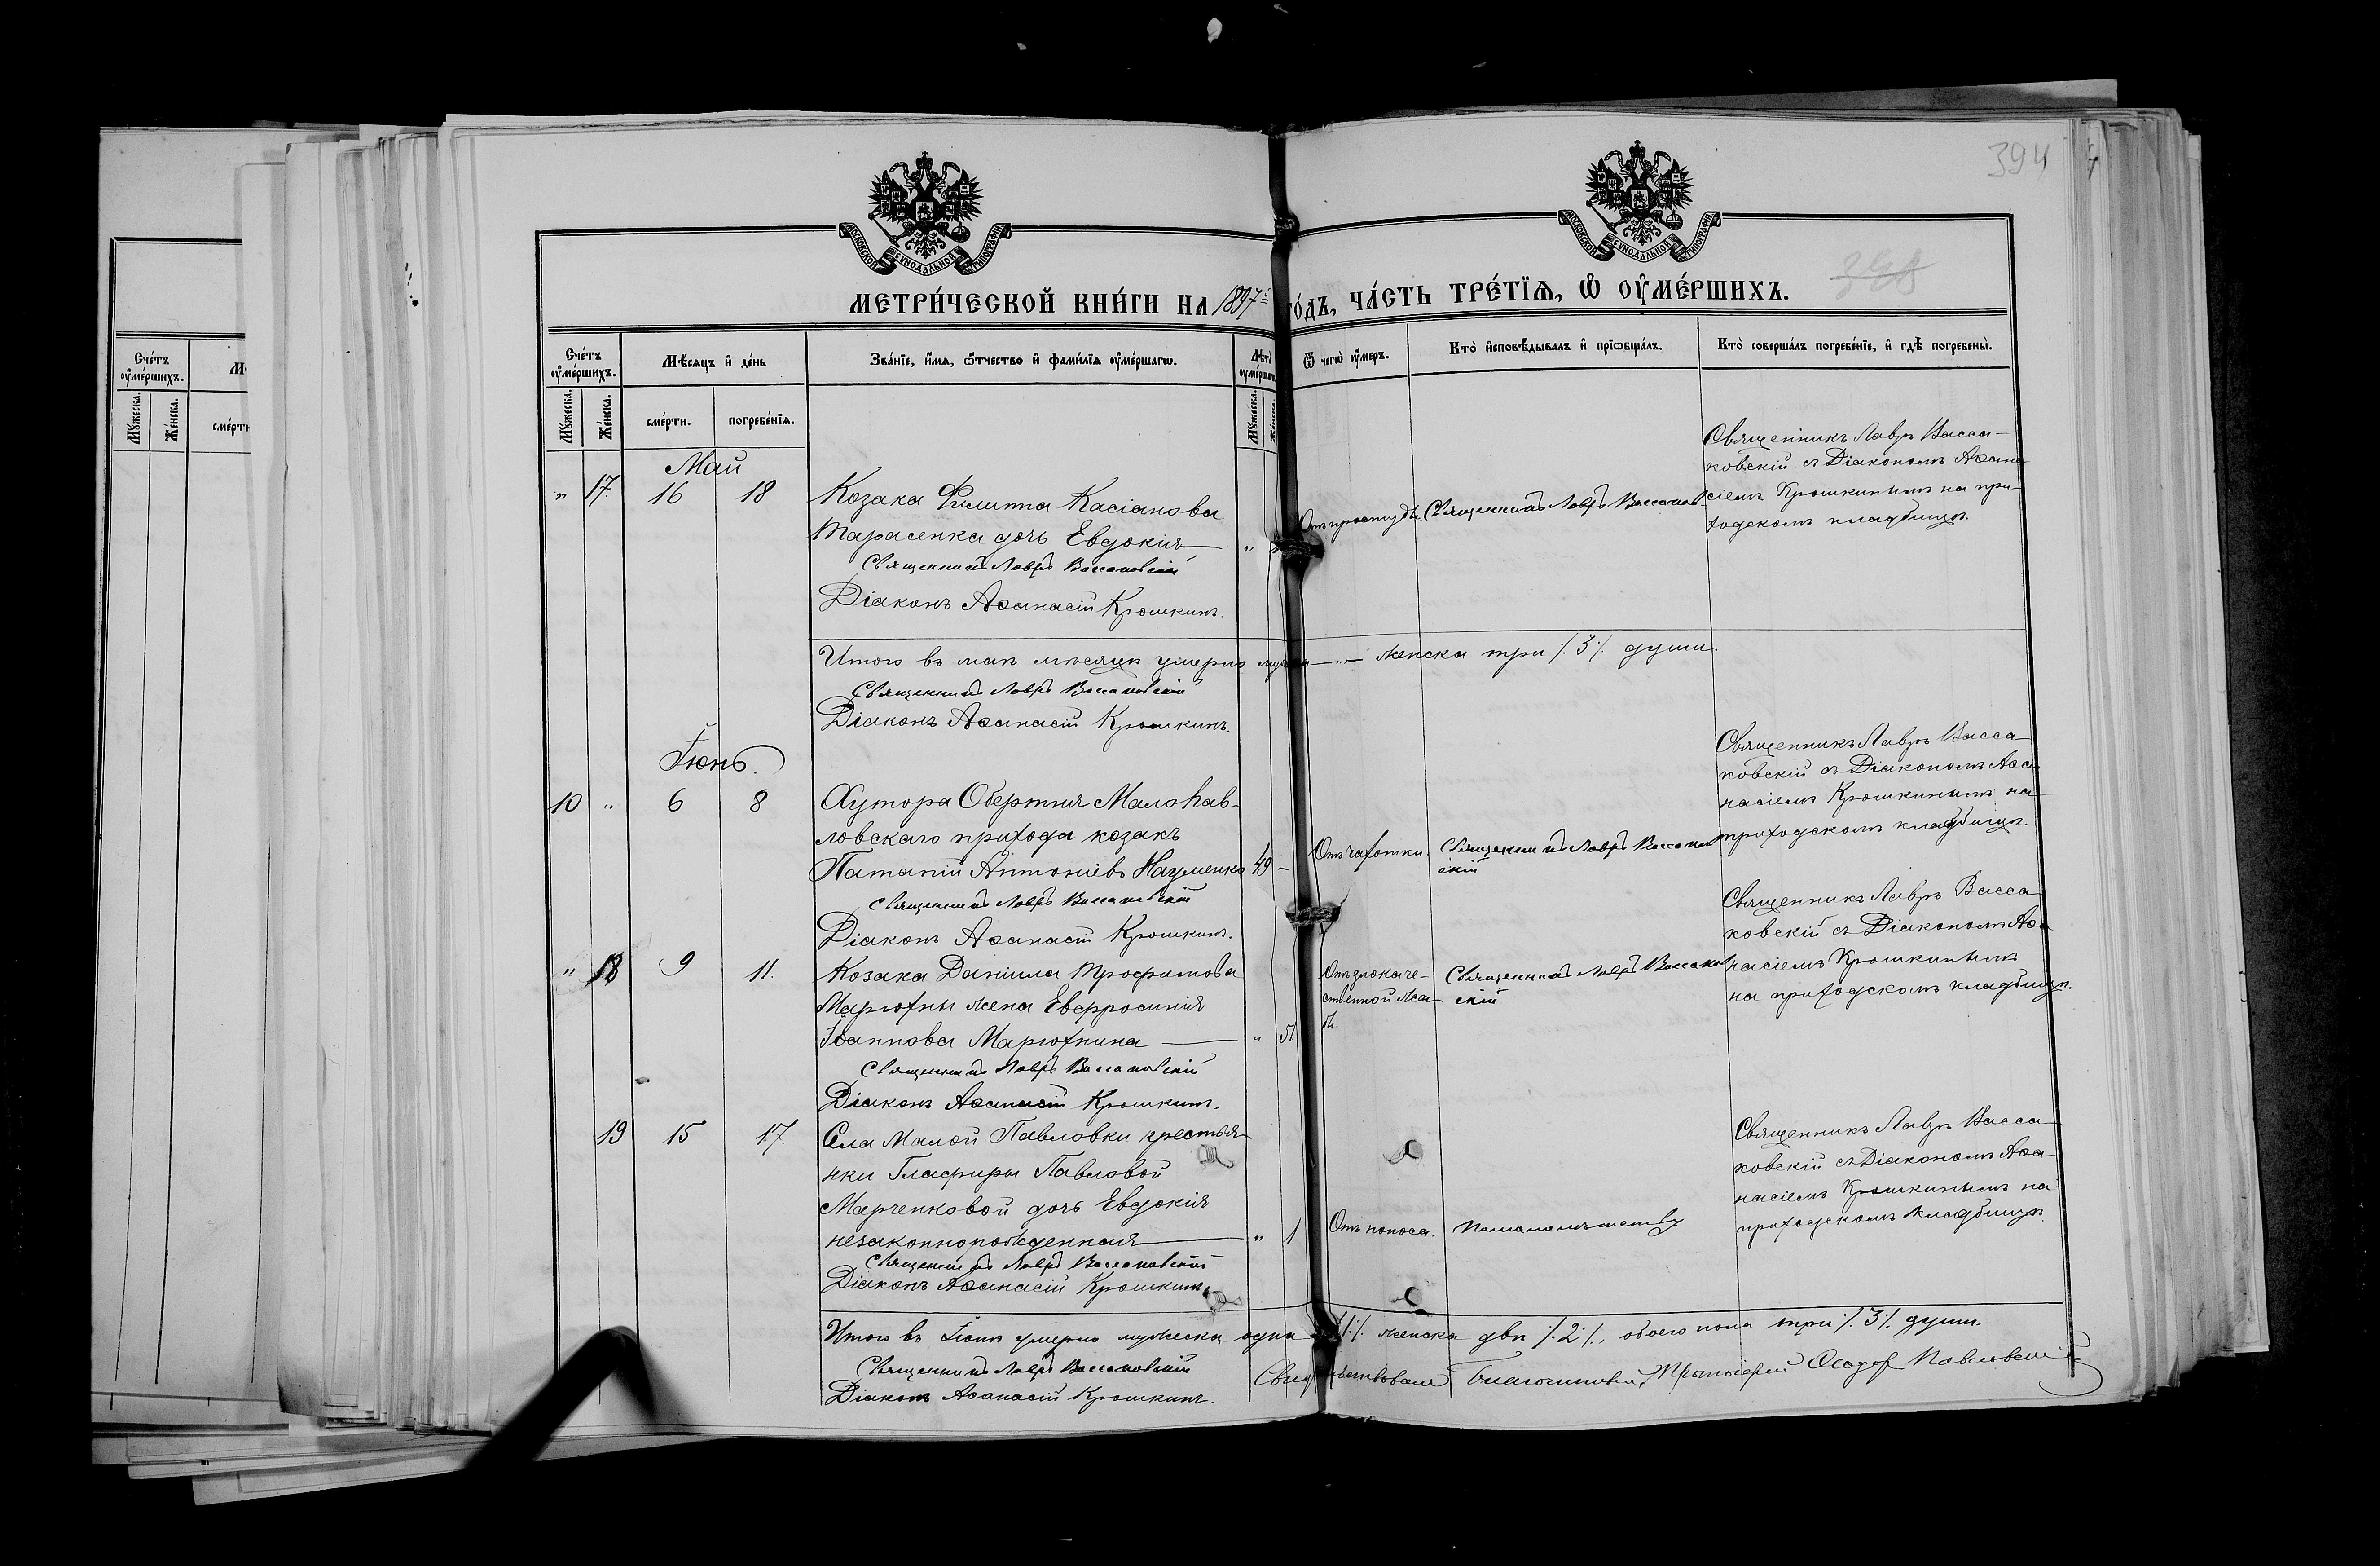 394
МОСКОВСКОЙ СѴНОДАЛЬНОЙ ТИПОГРАФІИ
МОСКОВСКОЙ СѴНОДАЛЬНОЙ ТИПОГРАФІИ
МЕТРИ́ЧЕСКОЙ КНИ́ГИ НА 1897 ГО́ДЪ, ЧА́СТЬ ТРЕ́ТЇѦ, Ѡ҆ ОУ҆МЕ́РШИХЪ.
Сче́тъ оу҆ме́ршихъ.
Мꙋ́жеска.
Же́нска.
Мѣ́сяцъ и҆ де́нь
сме́рти.
погребе́нїѧ.
Зва́нїе, и҆́мѧ, ѻ҆́тчество и҆ фами́лїѧ оу҆ме́ршагѡ.
Лѣ́та оу҆ме́ршагѡ
Мꙋ́жеска.
Же́нска.
Ѿ чегѡ̀ оу҆́меръ.
Кто̀ и҆сповѣ́дывалъ и҆ прїѡбща́лъ.
Кто̀ соверша́лъ погребе́нїе, и҆ гдѣ̀ погребены̀.
Сче́тъ
оу҆ме́ршихъ.
Мꙋ́жеска.
Же́нска.
сме́рти
Май
" 17. 16 18
Козака Филиппа Касіанова
Тарасенка дочь Евдокія "
Священникъ Лавръ Вассаковскій
Діаконъ Аѳанасій Крошкинъ.
Отъ простуды.
Священникъ Лавръ Вассаков
Священникъ Лавръ Васса-
ковскій съ Діакономъ Аѳана
сіемъ Крошкинымъ на при-
ходскомъ кладбищѣ.
Итого въ маѣ мѣсяцѣ умерло мужеска — " — женска три /.3/. души.
Священникъ Лавръ Вассаковскій
Діаконъ Аѳанасій Крошкинъ.
Іюнь.
10 " 6 8
Хутора Обертня Малопав-
ловскаго прихода козакъ
Патапій Антоніевъ Науменко 49 -
Священникъ Лавръ Вассаковскій
Діаконъ Аѳанасій Крошкинъ.
Отъ чахотки.
Священникъ Лавръ Вассаков
скій
Священникъ Лавръ Васса
ковскій съ Діакономъ Аѳа
насіемъ Крошкинымъ на
приходскомъ кладбищѣ.
" 18 9 11.
Козака Даніила Трофимова
Марюхны жена Евфросинія
Іоаннова Марюхнина " 51
Священникъ Лавръ Вассаковскій
Діаконъ Аѳанасій Крошкинъ.
Отъ злокаче-
ственной жа-
бы.
Священникъ Лавръ Вассаков
скій
Священникъ Лавръ Васса
ковскій съ Діакономъ Аѳа
насіемъ Крошкинымъ
на приходскомъ кладбищѣ.
19 15 17.
Села Малой Павловки крестья
нки Глафиры Павловой
Марченковой дочь Евдокія
незаконнорожденная " 1
Священникъ Лавръ Вассаковскій
Діаконъ Аѳанасій Крошкинъ.
Отъ поноса.
По малолѣтству
Священникъ Лавръ Васса
ковскій съ Діакономъ Аѳа-
насіемъ Крошкинымъ на
приходскомъ кладбищѣ
Итого въ Іюнѣ умерло мужеска одна /.1/. женска двѣ /.2/., обоего пола три /.3/. души.
Священникъ Лавръ Вассаковскій
Діаконъ Аѳанасій Крошкинъ.
Свидѣтельствовалъ Благочинный, Протоіерей Ѳеодоръ Павловскій